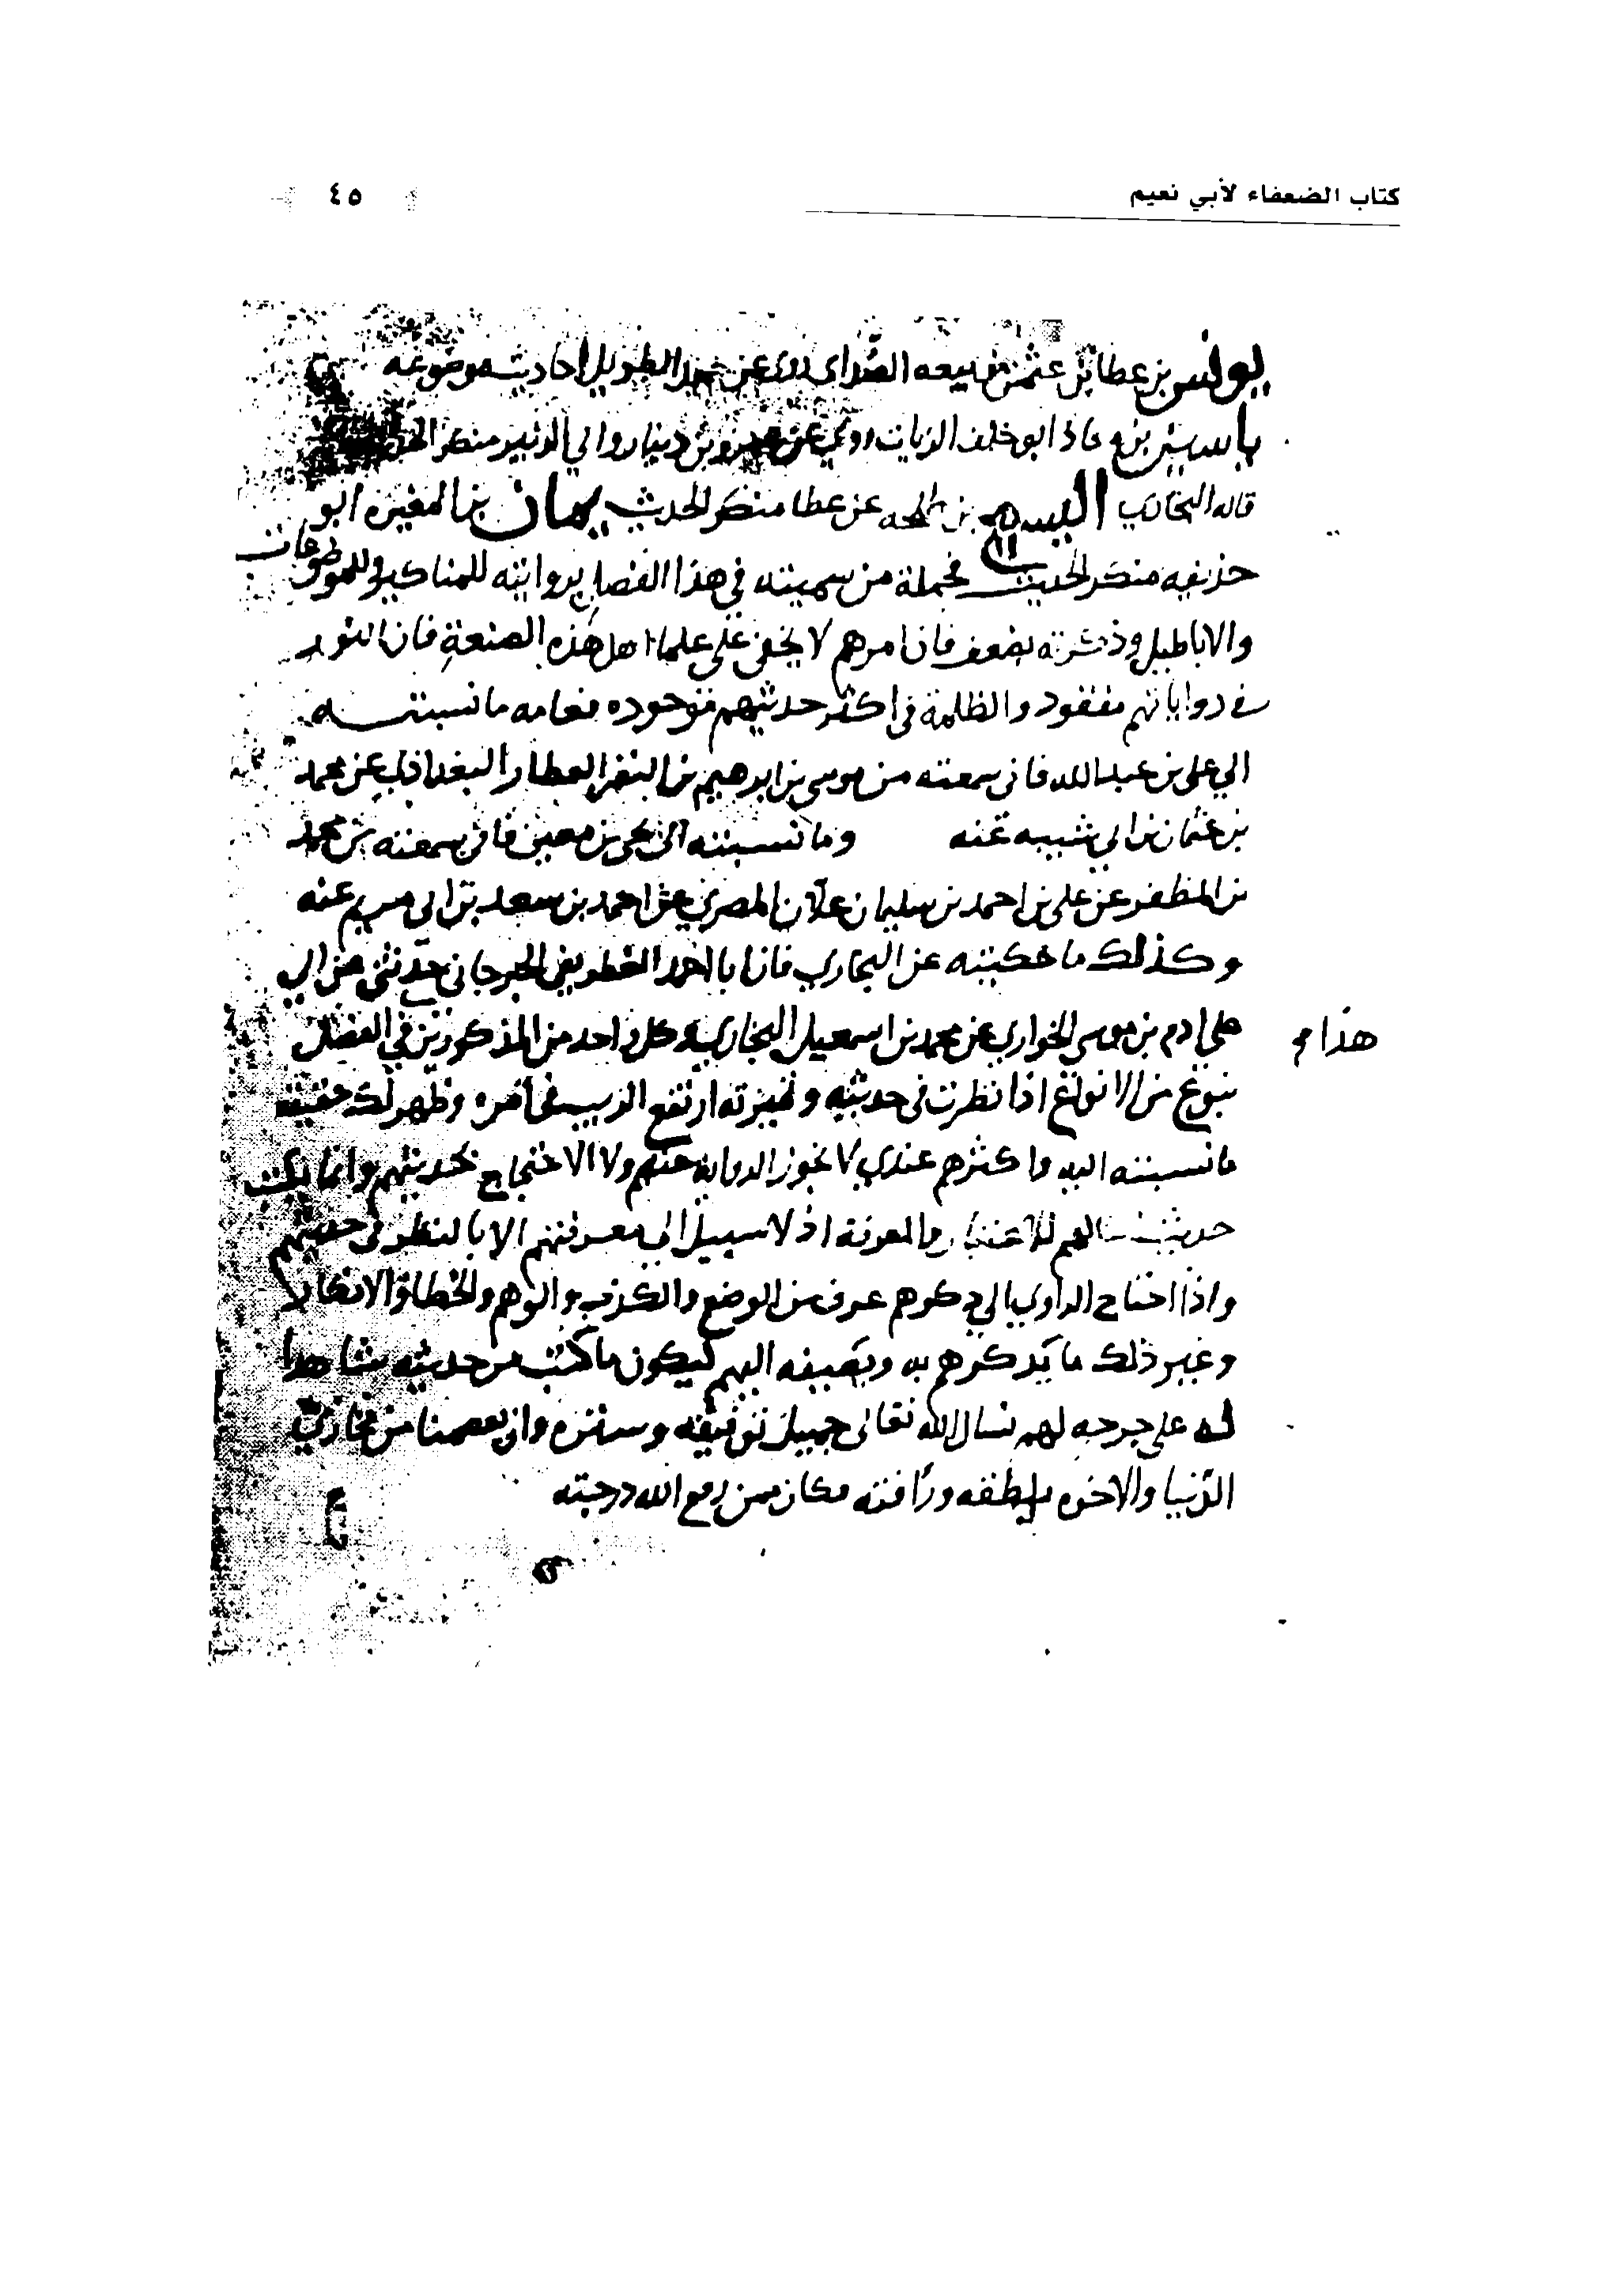 كتاب الضعفاء لأبي نعيم
٤٥
يونس بن عطا بن عثمن بن ربيعه الصداى روى عن حميد الطويل احاديث موضوعه
ياسين بن معاذ ابو خلف الزيات روى عن عمرو بن دينار وابي الزبير منكر
قاله البخاري اليسع بن طلحه عن عطا منكر الحديث يمان بن المغيره ابو
حذيفه منكر الحديث فجملة من سميته في هذا الفصل بروايته للمناكير وللموضوعات
والاباطيل وذكرته بضعف فان امرهم لا يخفى على علماء اهل هذه الصنعة فان النور
في رواياتهم مفقود والظلمة في اكثر حديثهم موجوده فعامه ما نسبته
الي على بن عبد الله فاني سمعته من موسى بن ابرهيم بن النضر العطار البغدادي عن محمد
بن عثمان بن ابي شيبه عنه وما نسبته الى يحى بن معين فاني سمعته من محمد
بن المظفر عن على بن احمد بن سليمان علان المصري عن احمد بن سعد بن ابى مريم عنه
وكذلك ما حكيته عن البخاري فان ابا احمد الغطريفي الجرجاني حدثني عن ابي
على ادم بن موسى الخواري عن محمد بن اسمعيل البخاري وكل واحد من المذكورين في الفصل
هذا
بنوع من الانواع اذا نظرت في حديثه وميزته ارتفع الريب في امره وظهر لك حقيقة
ما نسبته اليه واكثرهم عندي لا تجوز الروايه عنهم ولا الاحتجاج بحديثهم وانما يكتب
حديث للاعتبار والمعرفة اذ لا سبيل الى معرفتهم الا بالنظر في حديثهم
واذا احتاج الراوي الى ذكرهم عرف من الوضع والكذب والوهم والخطا والانكار
وغير ذلك ما يذكرهم به ويضيفه اليهم ليكون ما كتب من حديثه شاهدا
له على جرحه لهم نسال الله تعالى جميل توفيقه وستره وان يعصمنا من مخازي
الدنيا والاخره بلطفه ورافته مكان ممن رفع الله درجته